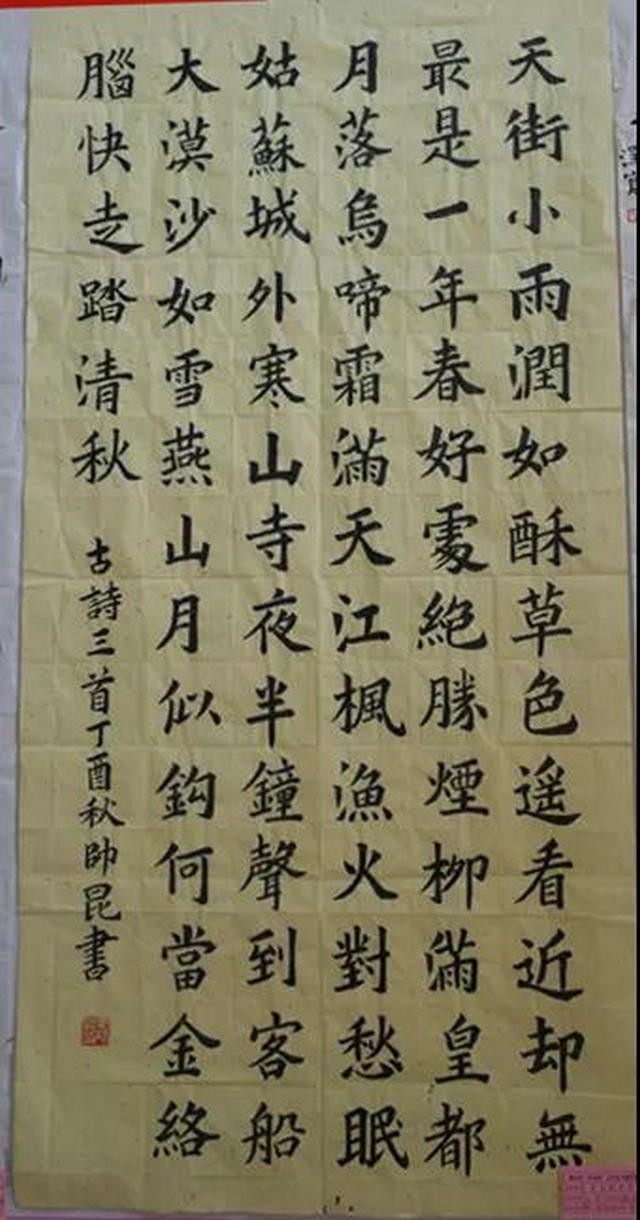 天街小雨潤如酥草色遥看近却無
最是一年春好處絕勝煙柳滿皇都
月落烏啼霜滿天江楓漁火對愁眠
姑蘇城外寒山寺夜半鐘聲到客船
大漠沙如雪燕山月似鈎何當金絡
腦快走踏清秋
古詩三首丁酉秋帥昆書